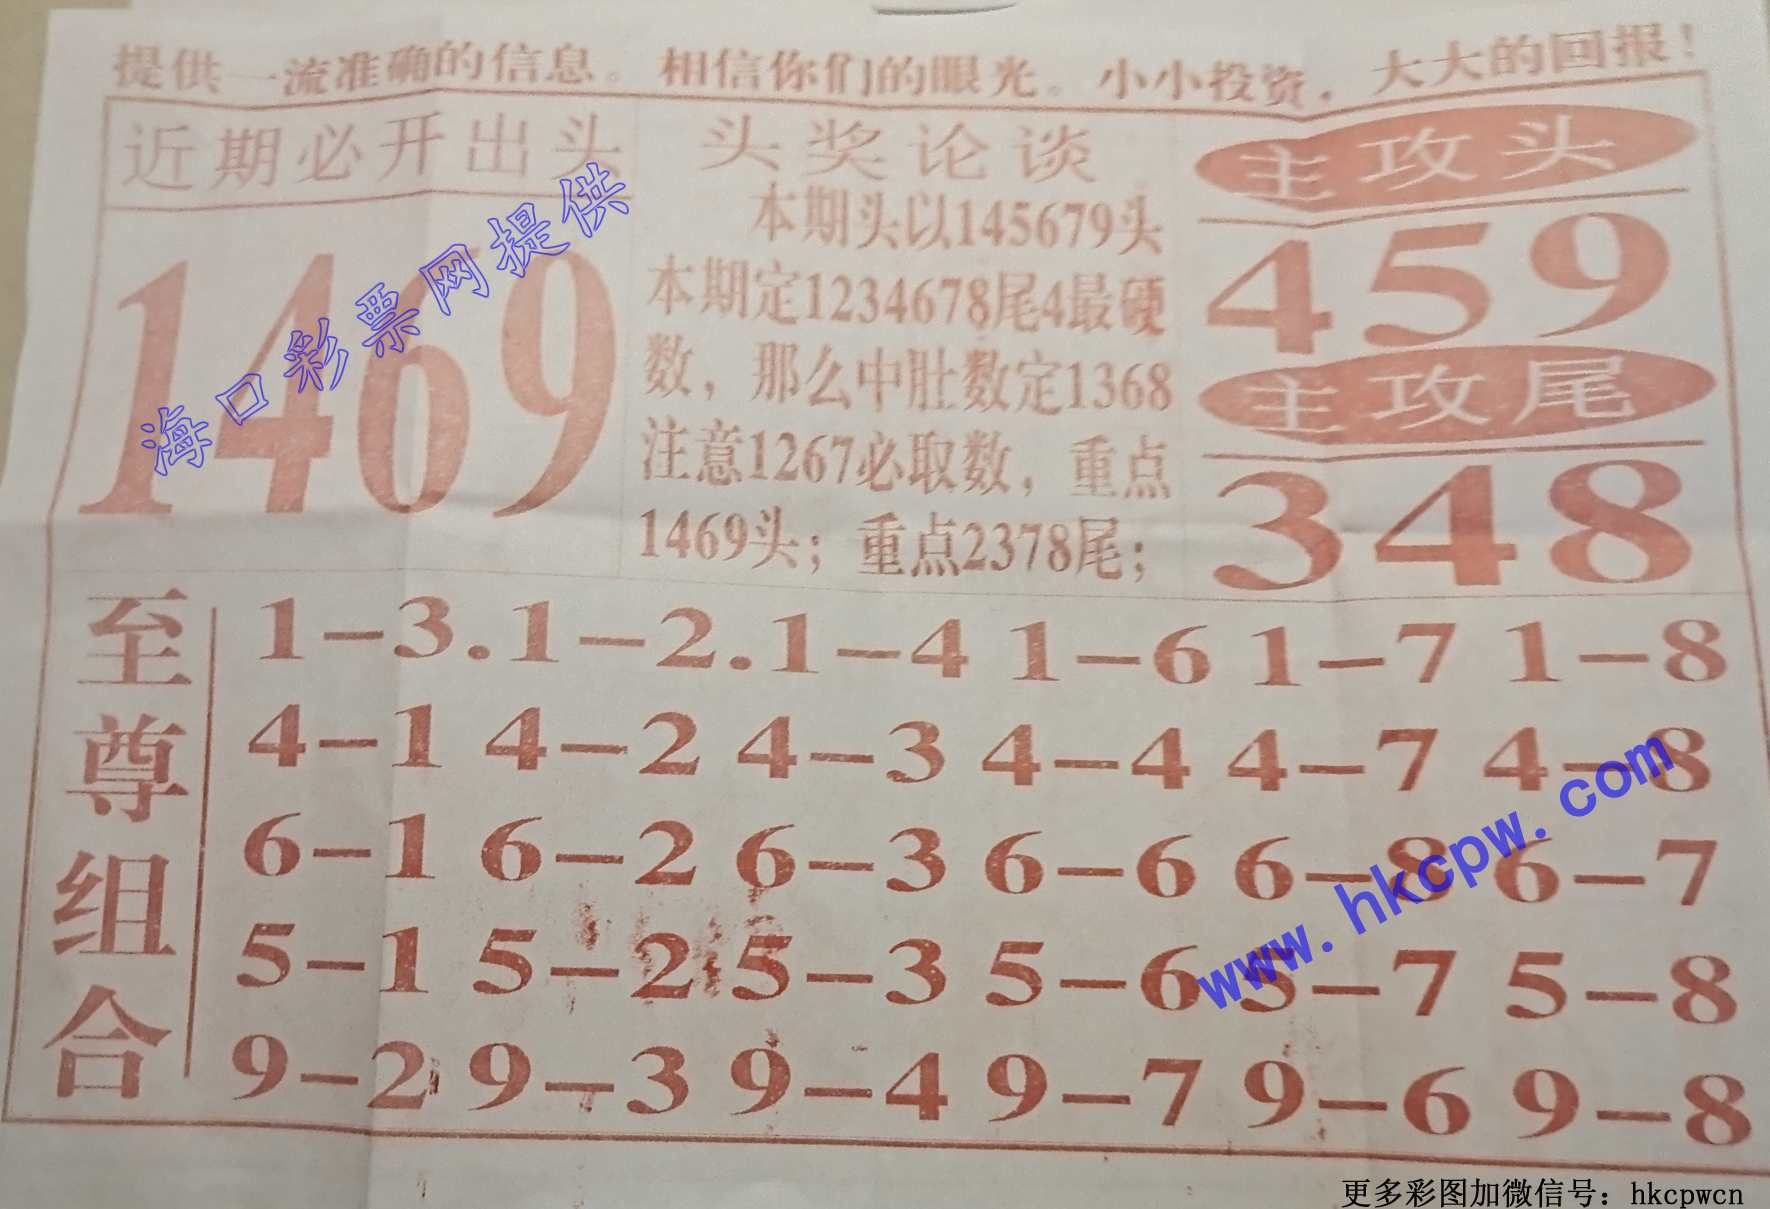 提供一流准确的信息。相信你们的眼光。小小投资，大大的回报！
近期必开出头
1469
头奖论谈
本期头以145679头
本期定1234678尾4最硬
数，那么中肚数定1368
注意1267必取数，重点
1469头；重点2378尾；
主攻头
459
主攻尾
348
至尊组合
1-3.1-2.1-4 1-6 1-7 1-8
4-1 4-2 4-3 4-4 4-7 4-8
6-1 6-2 6-3 6-6 6-8 6-7
5-1 5-2 5-3 5-6 5-7 5-8
9-2 9-3 9-4 9-7 9-6 9-8
海口彩票网提供
www.hkcpw.com
更多彩图加微信号：hkcpwcn